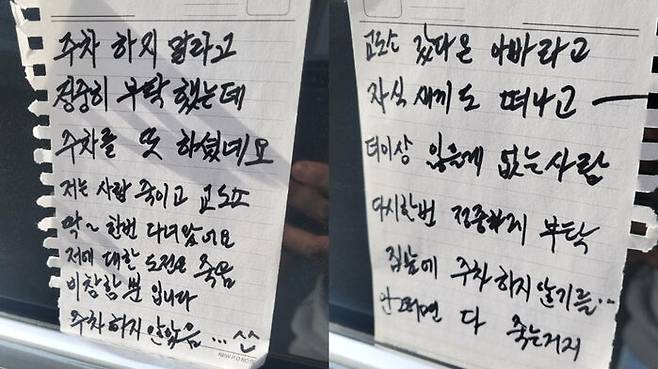 주차 하지 말라고
정중히 부탁 했는데
주차를 또 하셨네요
저는 사람 죽이고 교도소
딱~ 한번 다녀왔어요
저에 대한 도전은 죽음
비참함 뿐 입니다
주차하지 않았음 ... ^^
교도소 갔다온 아빠라고
자식 새끼도 떠나고 —
더이상 잃을게 없는사람
다시한번 정중하게 부탁
집앞에 주차하지 않기를..
안그러면 다 죽는거지